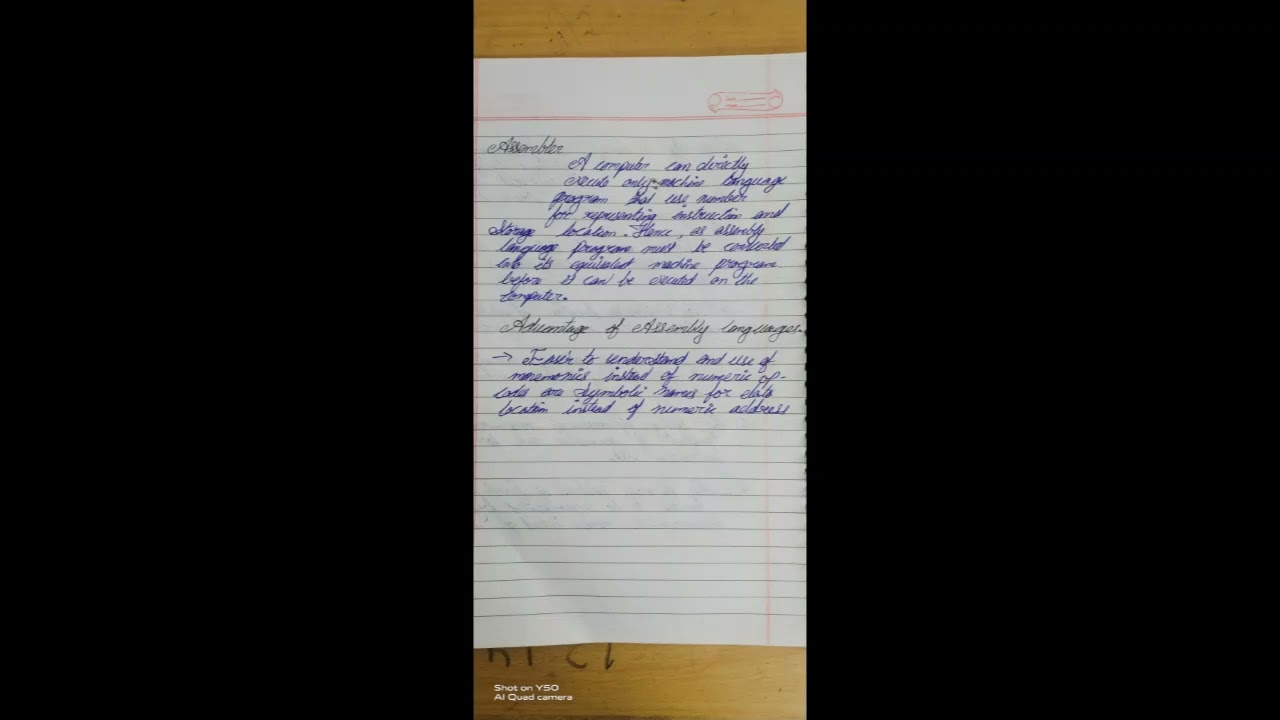 Assembler
A computer can directly
execute only machine language
program that use number
for representing instruction and
Storage location. Hence, as assembly
language program must be converted
into its equivalent machine program
before it can be executed on the
computer.
Advantage of Assembly languages.
→ Easier to understand and use of
mnemonics instead of numeric op-
codes are symbolic names for data
location instead of numeric address
Shot on Y50
AI Quad camera